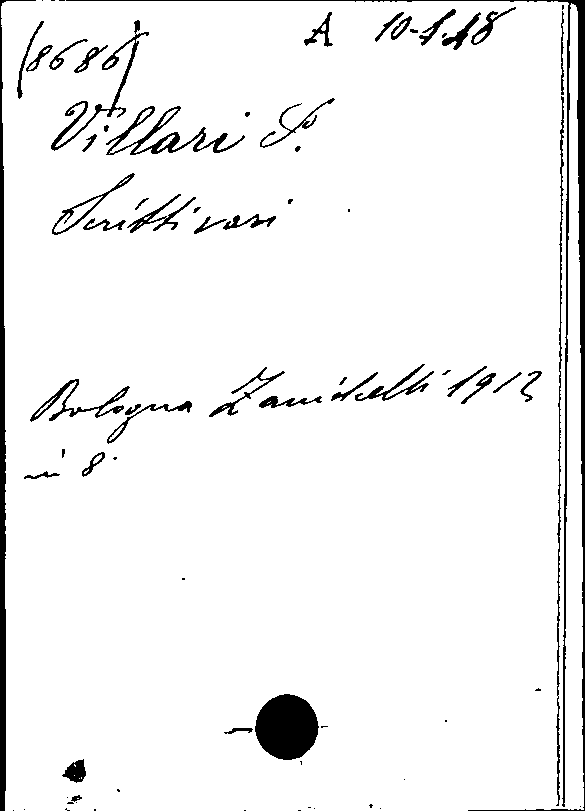 (8686) A 10-1.48
Villari P.
Scritti vari
Bologna Zanichelli 1912
in 8°